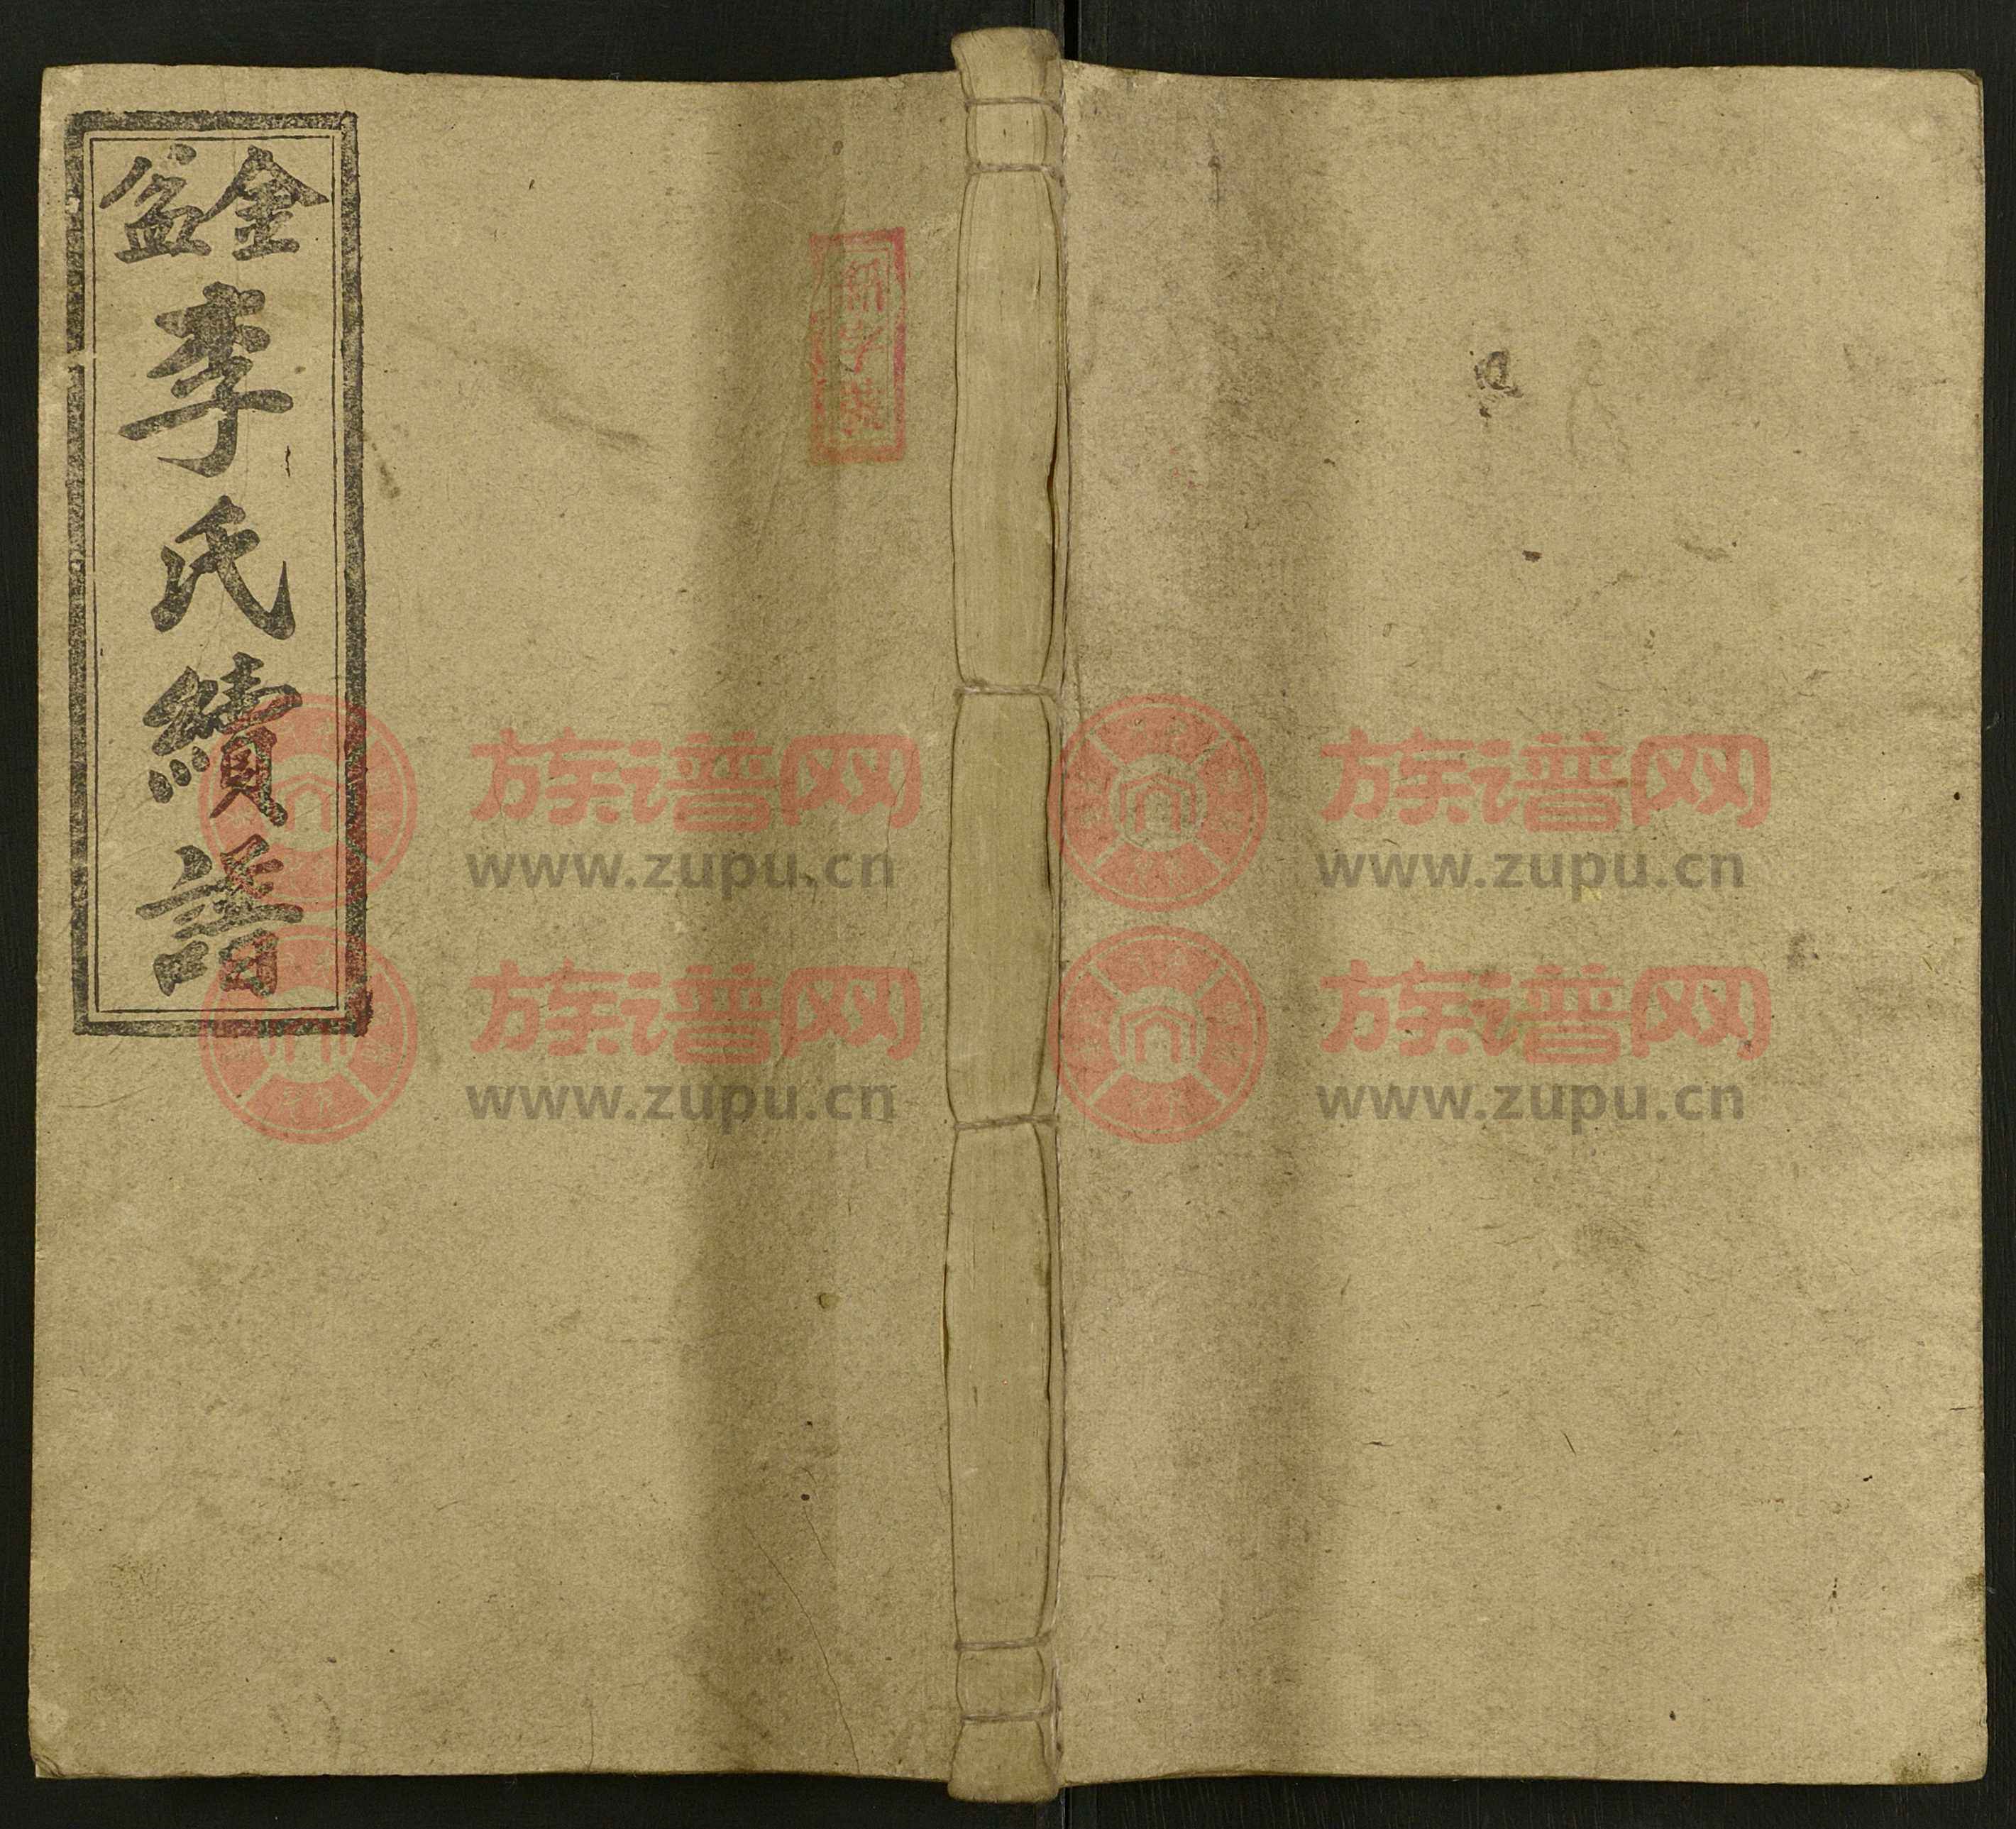 金盆
李氏續譜
族谱网
www.zupu.cn
族谱网
www.zupu.cn
族谱网
www.zupu.cn
族谱网
www.zupu.cn